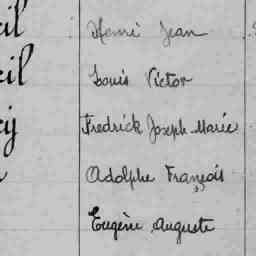 il Henri Jean
il Louis Victor
Fredrick Joseph Marie
Adolphe François
Eugène Auguste